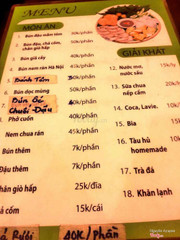 MENU
MÓN ĂN
1. Bún đậu mắm tôm 30k/phần
2. Bún đậu, chả cốm, chân giò hấp
3. Bún giả cầy 40k/phần
4. Bún nem rán Hà Nội 40k/phần
5. Bánh Tôm /phần
6. Bún dọc mùng 40k/phần
Bún Ốc /phần
Chuối Đậu
Phở cuốn 40k/phần
Nem chua rán 45k/phần
Bún thêm 7k/phần
Đậu thêm 7k/phần
giò hấp 25k/đĩa
cốm 15k/cái
Rươi 40K/Phần
GIẢI KHÁT
12. Nước mơ, nước sấu 15k/ly
13. Sữa chua nếp cẩm
14. Coca, Lavie.
15. Bia
16. Tàu hủ homemade
17. Trà đá
18. Khăn lạnh